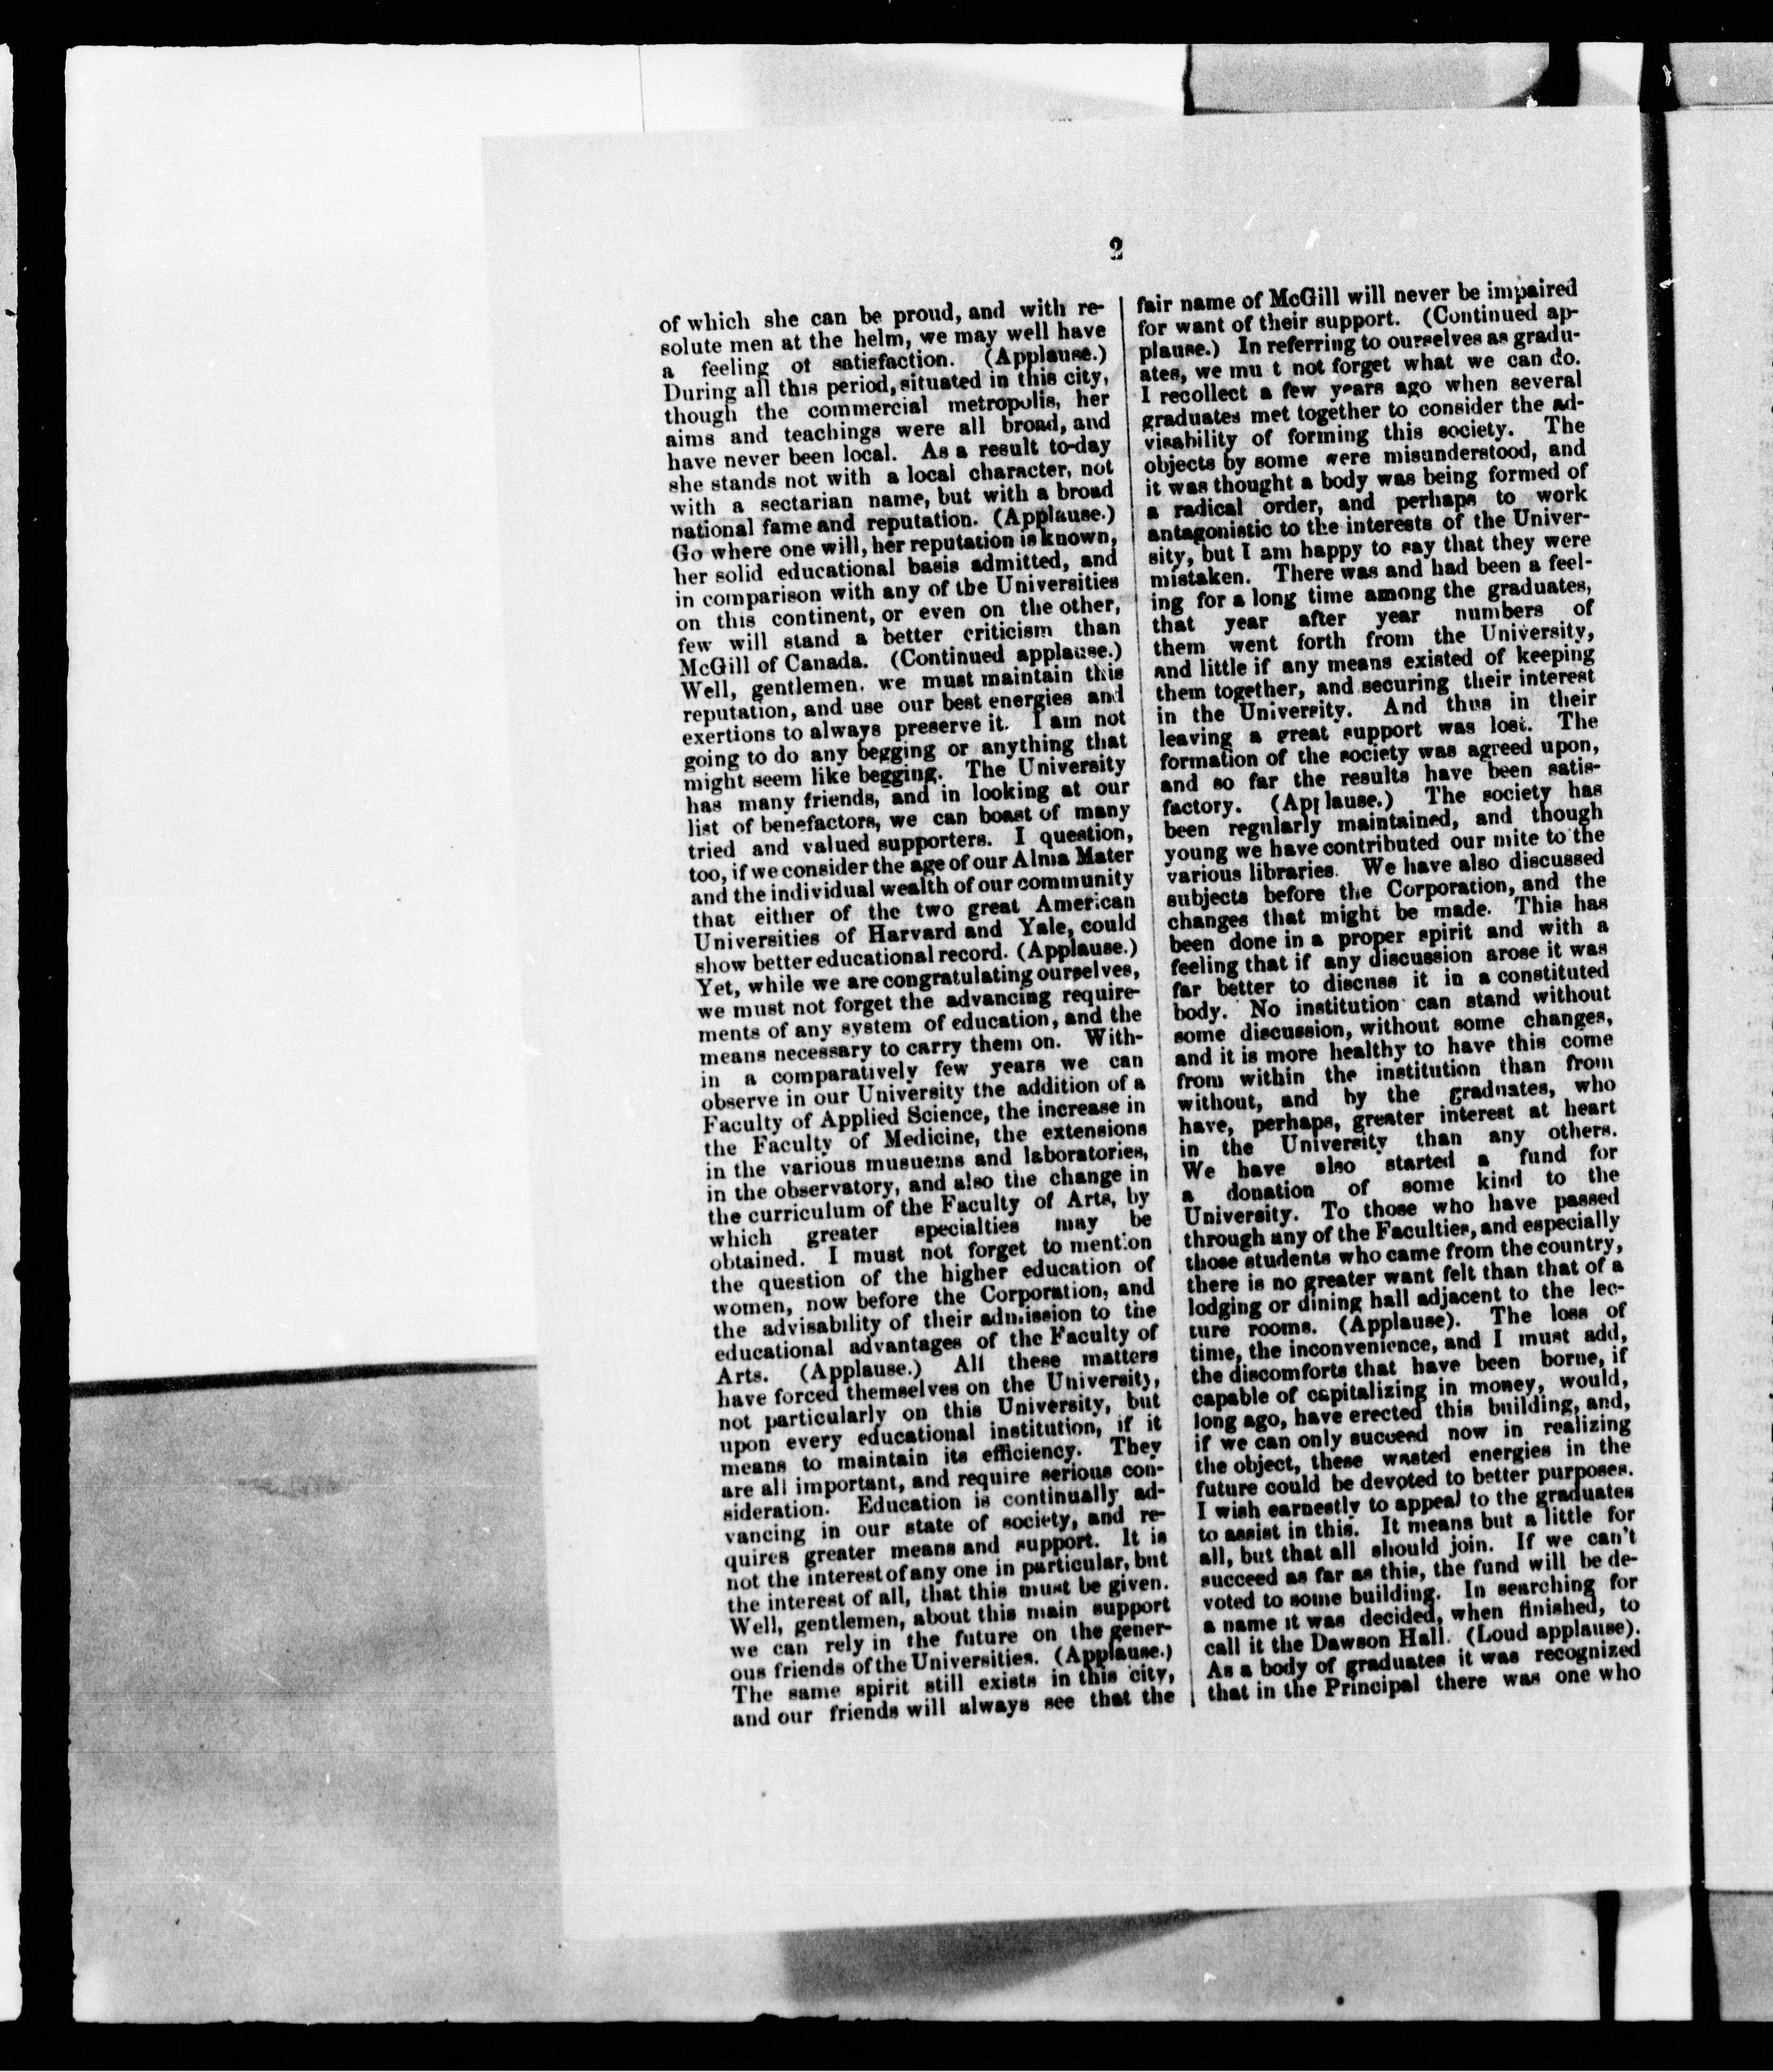 2
of which she can be proud, and with re-
solute men at the helm, we may well have
a feeling ot satisfaction. (Applause.)
During all this period, situated in this city,
though the commercial metropolis, her
aims and teachings were all broad, and
have never been local. As a result to-day
she stands not with a local character, not
with a sectarian name, but with a broad
national fame and reputation. (Applause.)
Go where one will, her reputation is known,
her solid educational basis admitted, and
in comparison with any of the Universities
on this continent, or even on the other,
few will stand a better criticism than
McGill of Canada. (Continued applause.)
Well, gentlemen, we must maintain this
reputation, and use our best energies and
exertions to always preserve it. I am not
going to do any begging or anything that
might seem like begging. The University
has many friends, and in looking at our
list of benefactors, we can boast of many
tried and valued supporters. I question,
too, if we consider the age of our Alma Mater
and the individual wealth of our community
that either of the two great American
Universities of Harvard and Yale, could
show better educational record. (Applause.)
Yet, while we are congratulating ourselves,
we must not forget the advancing require-
ments of any system of education, and the
means necessary to carry them on. With-
in a comparatively few years we can
observe in our University the addition of a
Faculty of Applied Science, the increase in
the Faculty of Medicine, the extensions
in the various musuems and laboratories,
in the observatory, and also the change in
the curriculum of the Faculty of Arts, by
which greater specialties may be
obtained. I must not forget to mention
the question of the higher education of
women, now before the Corporation, and
the advisability of their admission to the
educational advantages of the Faculty of
Arts. (Applause.) All these matters
have forced themselves on the University,
not particularly on this University, but
upon every educational institution, if it
means to maintain its efficiency. They
are all important, and require serious con-
sideration. Education is continually ad-
vancing in our state of society, and re-
quires greater means and support. It is
not the interest of any one in particular, but
the interest of all, that this must be given.
Well, gentlemen, about this main support
we can rely in the future on the gener-
ous friends of the Universities. (Applause.)
The same spirit still exists in this city,
and our friends will always see that the
fair name of McGill will never be impaired
for want of their support. (Continued ap-
plause.) In referring to ourselves as gradu-
ates, we mu t not forget what we can do.
I recollect a few years ago when several
graduates met together to consider the ad-
visability of forming this society. The
objects by some were misunderstood, and
it was thought a body was being formed of
a radical order, and perhaps to work
antagonistic to the interests of the Univer-
sity, but I am happy to say that they were
mistaken. There was and had been a feel-
ing for a long time among the graduates,
that year after year numbers of
them went forth from the University,
and little if any means existed of keeping
them together, and securing their interest
in the University. And thus in their
leaving a great support was lost. The
formation of the society was agreed upon,
and so far the results have been satis-
factory. (Applause.) The society has
been regularly maintained, and though
young we have contributed our mite to the
various libraries. We have also discussed
subjects before the Corporation, and the
changes that might be made. This has
been done in a proper spirit and with a
feeling that if any discussion arose it was
far better to discuss it in a constituted
body. No institution can stand without
some discussion, without some changes,
and it is more healthy to have this come
from within the institution than from
without, and by the graduates, who
have, perhaps, greater interest at heart
in the University than any others.
We have also started a fund for
a donation of some kind to the
University. To those who have passed
through any of the Faculties, and especially
those students who came from the country,
there is no greater want felt than that of a
lodging or dining hall adjacent to the lec-
ture rooms. (Applause). The loss of
time, the inconvenience, and I must add,
the discomforts that have been borne, if
capable of capitalizing in money, would,
long ago, have erected this building, and,
if we can only succeed now in realizing
the object, these wasted energies in the
future could be devoted to better purposes.
I wish earnestly to appeal to the graduates
to assist in this. It means but a little for
all, but that all should join. If we can't
succeed as far as this, the fund will be de-
voted to some building. In searching for
a name it was decided, when finished, to
call it the Dawson Hall. (Loud applause).
As a body of graduates it was recognized
that in the Principal there was one who